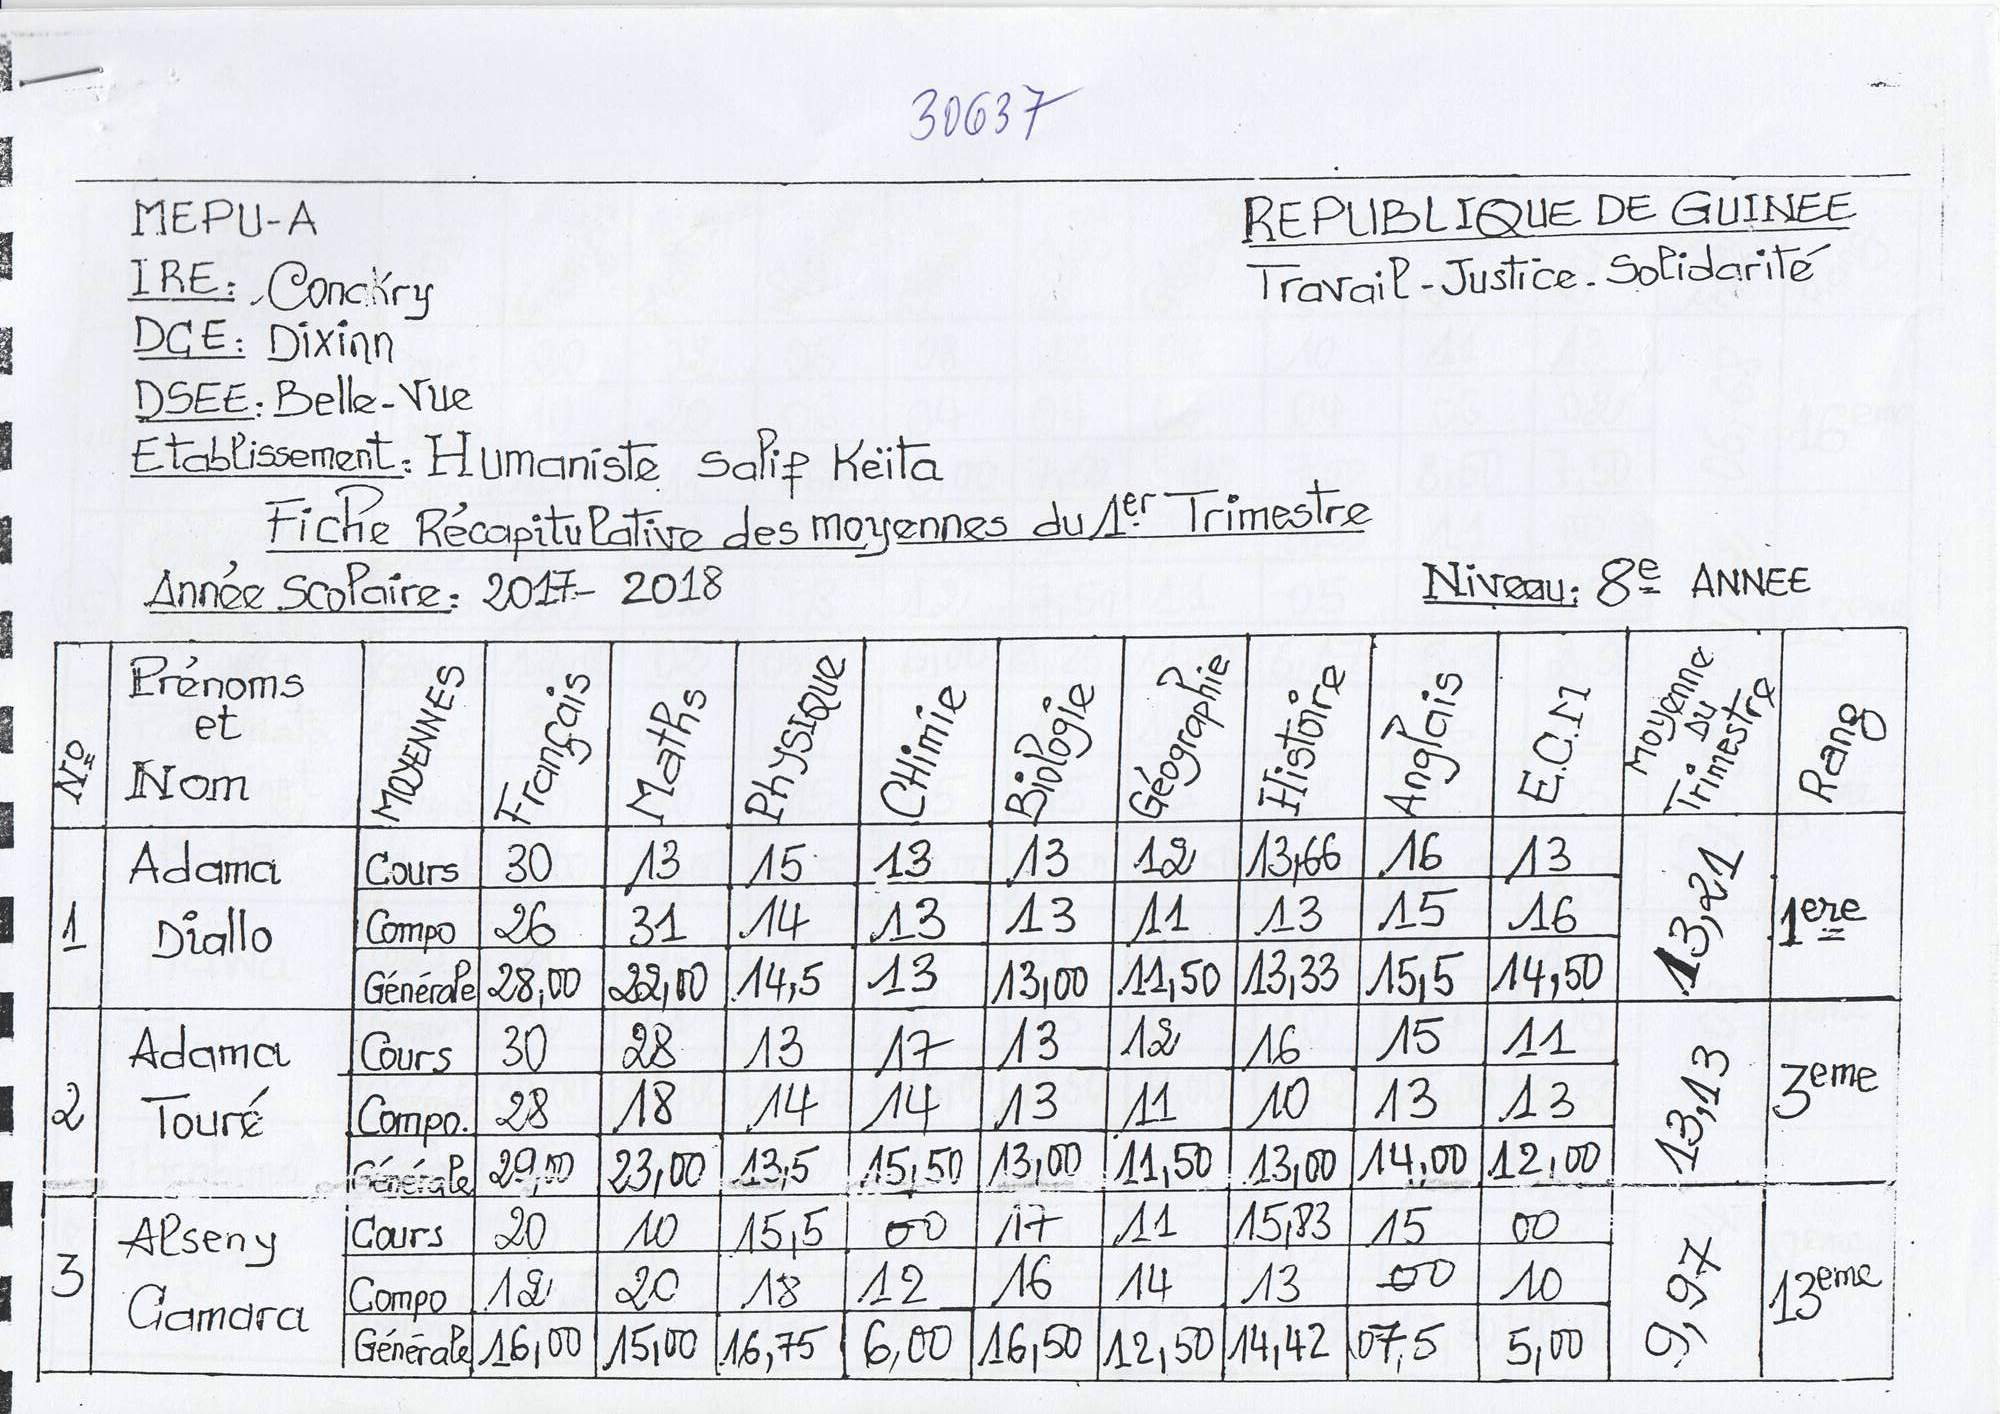 30637
MEPU-A
REPUBLIQUE DE GUINEE
IRE: Conakry
Travail-Justice-Solidarité
DCE: Dixinn
DSEE: Belle-Vue
Etablissement: Humaniste Salif Keïta
Fiche Récapitulative des moyennes du 1er Trimestre
Année Scolaire: 2017-2018
Niveau: 8e ANNEE
No Prénoms et Nom MOYENNES Français Maths Physique Chimie Biologie Géographie Histoire Anglais E.C.M Moyenne Du Trimestre Rang
1 Adama Diallo Cours 30 13 15 13 13 12 13,66 16 13 13,21 1ere
Compo 26 31 14 13 13 11 13 15 16
Générale 28,00 22,00 14,5 13 13,00 11,50 13,33 15,5 14,50
2 Adama Touré Cours 30 28 13 17 13 12 16 15 11 13,13 3eme
Compo. 28 18 14 14 13 11 10 13 13
Générale 29,00 23,00 13,5 15,50 13,00 11,50 13,00 14,00 12,00
3 Alseny Camara Cours 20 10 15,5 00 17 11 15,83 15 00 9,97 13eme
Compo 12 20 18 12 16 14 13 00 10
Générale 16,00 15,00 16,75 6,00 16,50 12,50 14,42 07,5 5,00